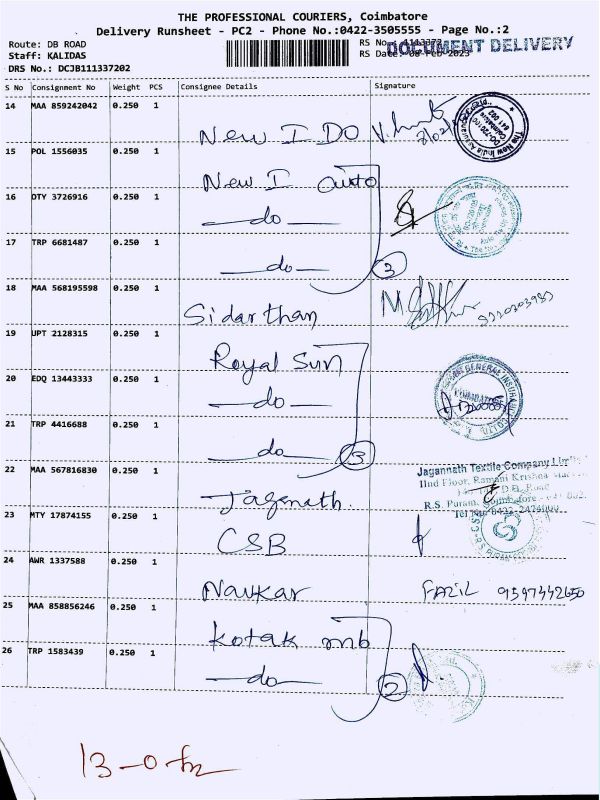 THE PROFESSIONAL COURIERS, Coimbatore
Delivery Runsheet - PC2 - Phone No.:0422-3505555 - Page No.:2
Route: DB ROAD
RS No.: 1113372
DOCUMENT DELIVERY
Staff: KALIDAS
RS Date: 08-Feb-2023
DRS No.: DCJB111337202
S No Consignment No Weight PCS Consignee Details Signature
14 MAA 859242042 0.250 1
New I DO
15 POL 1556035 0.250 1
New I Outo
16 OTY 3726916 0.250 1
do
17 TRP 6681487 0.250 1
do 3
18 MAA 568195598 0.250 1
Sidarthan
19 UPT 2128315 0.250 1
Royal Sun
20 EDQ 13443333 0.250 1
do
21 TRP 4416688 0.250 1
do 3
22 MAA 567816830 0.250 1
Jagannath Textile Company
IInd Floor, Ramani Krishna
R.S. Puram, Coimbatore
Jagenath.
23 MTY 17874155 0.250 1
CSB
24 AWR 1337588 0.250 1
Navkar FAZIL 9597442650
25 MAA 858856246 0.250 1
Kotak mb
26 TRP 1583439 0.250 1
do 2